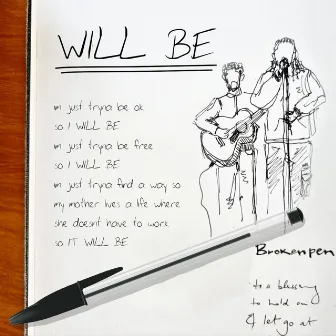 WILL BE
im just tryna be ok
so I WILL BE
im just tryna be free
so I WILL BE
im just tryna find a way so
my mother lives a life where
she doesnt have to work
so IT WILL BE
Brokenpen
to a blessing
to hold on
& let go at